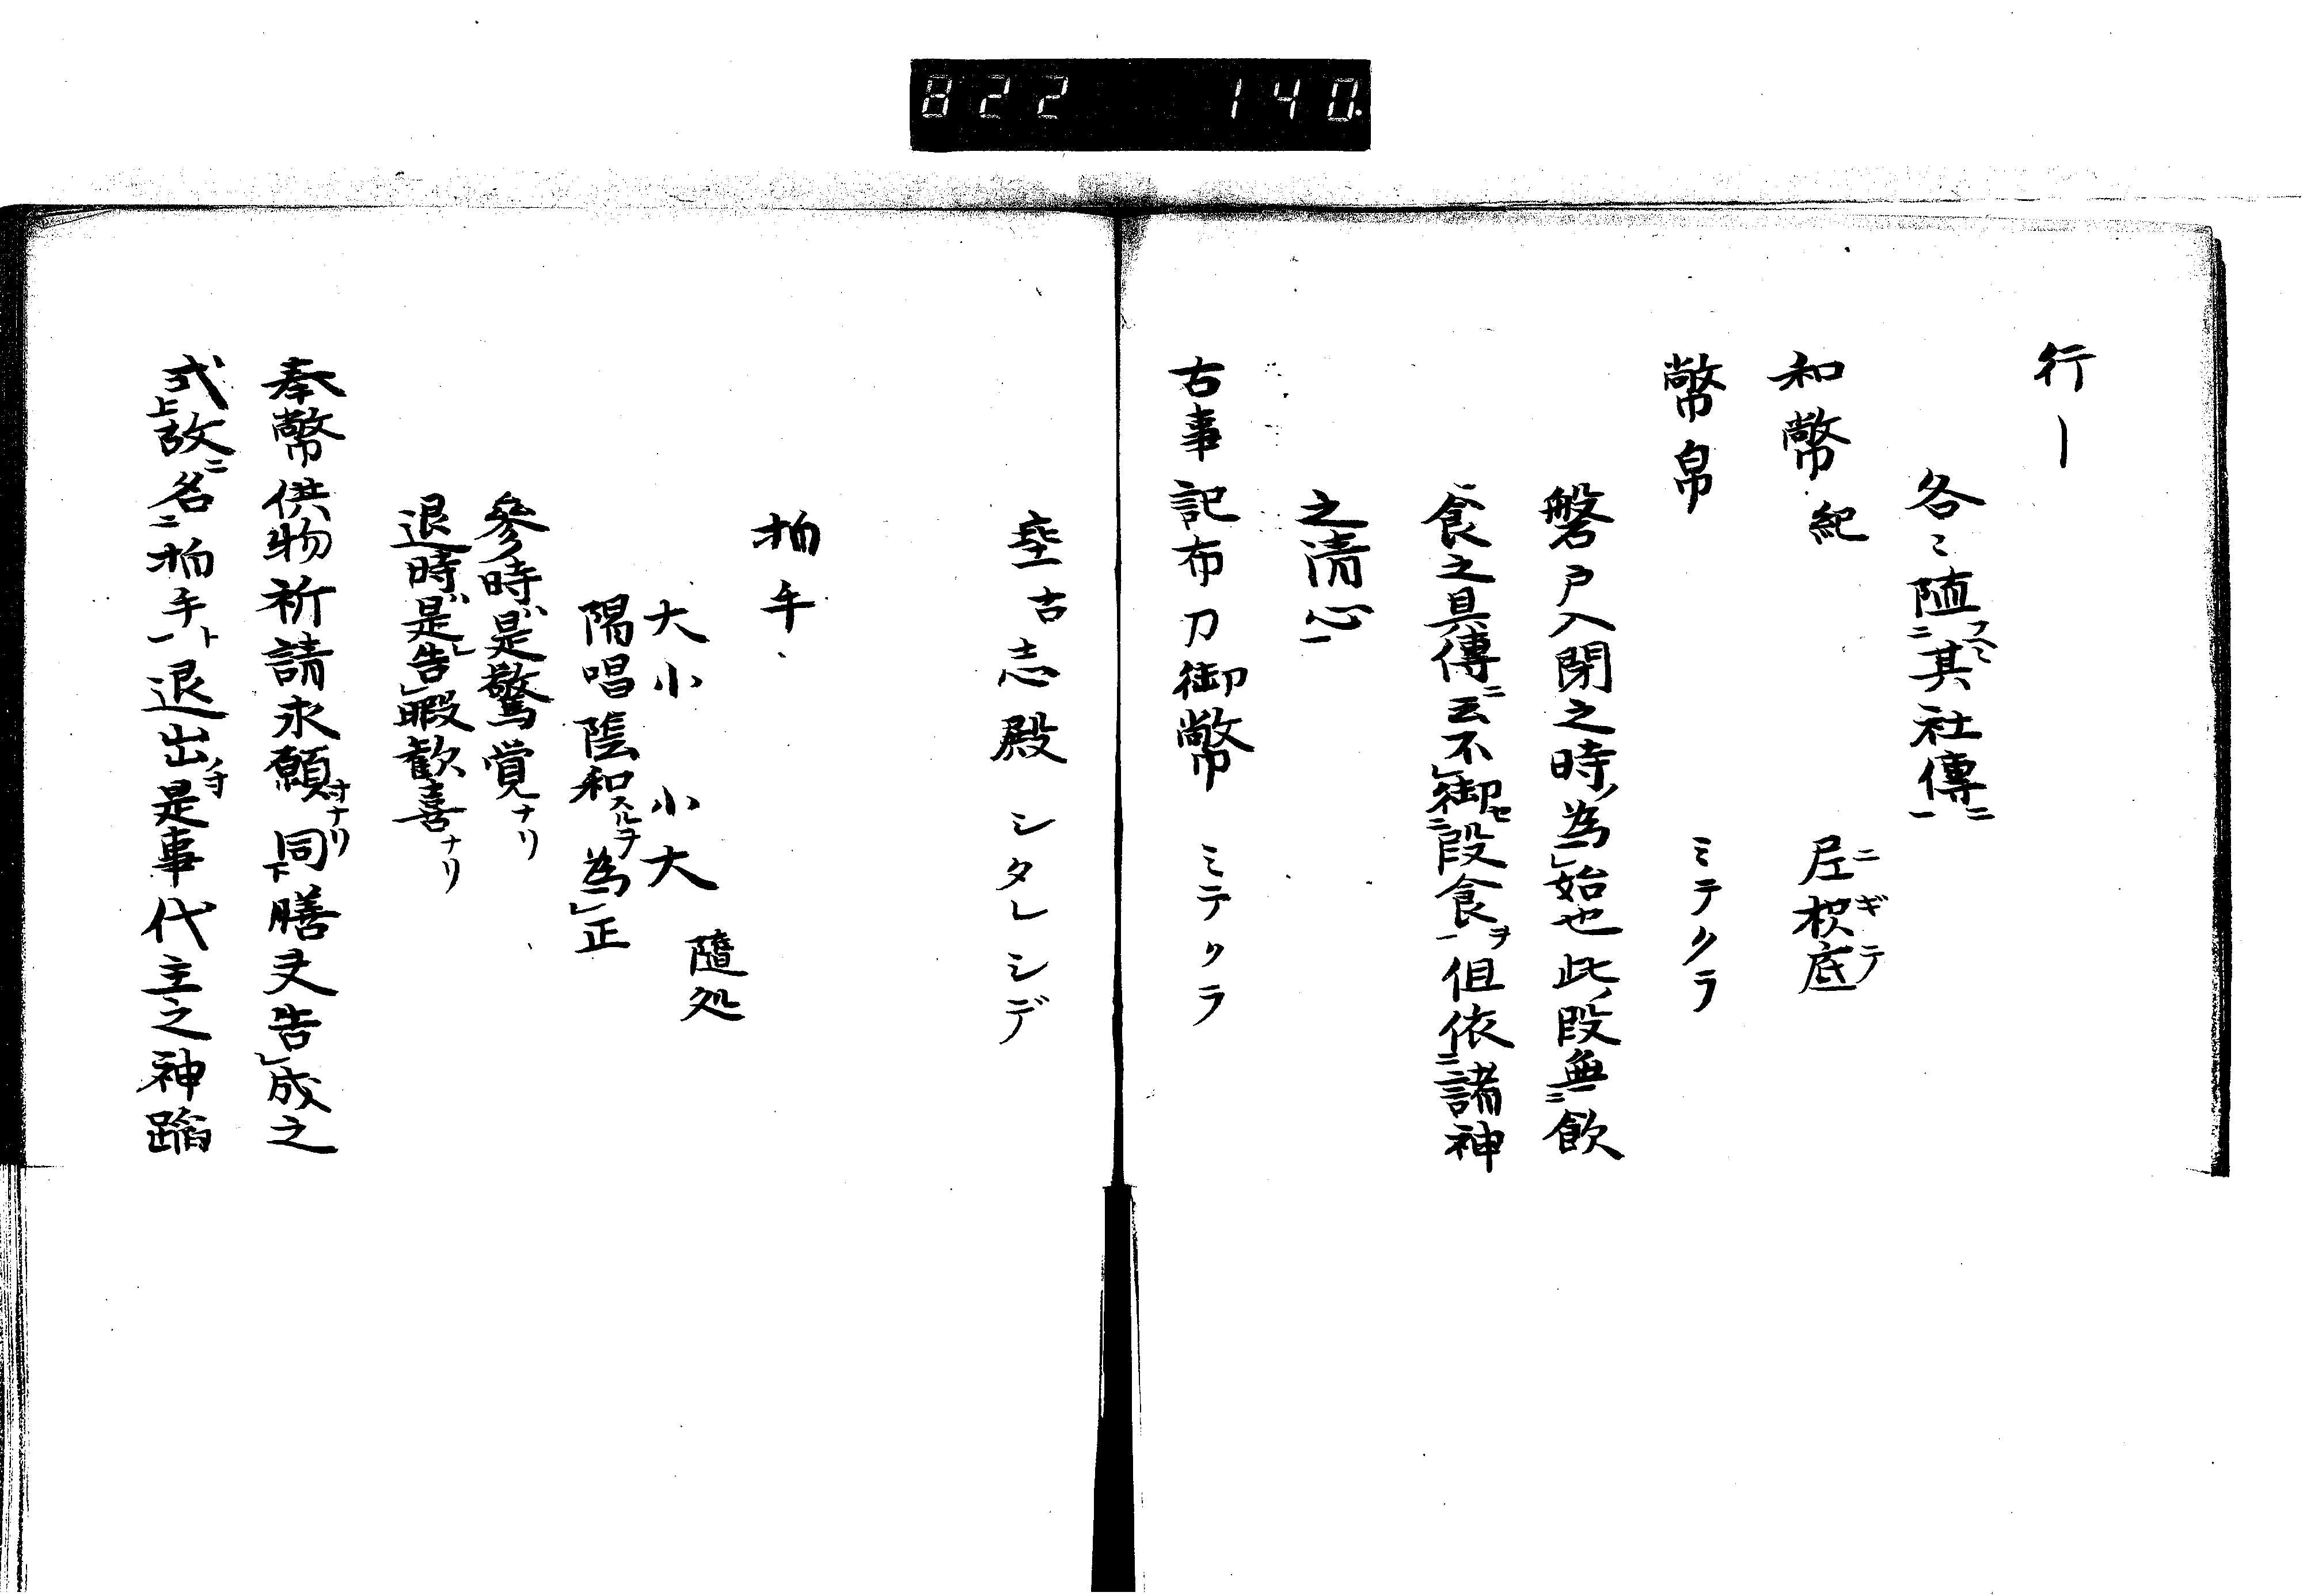 822 140.
行｜
各〻随二其社傳一
和幣 紀 尼枳底 ニギテ
幣帛 ミテクラ
磐戸入閉之時ノ為レ始也此ノ段無二飲
食之具傳ニ云不レ御セ二段食ヲ一但依二諸神
之清心一
古事記布刀御幣 ミテクラ
垂古志殿 シタレシデ
拍手
大小 小大 随処
陽唱陰和スルヲ為レ正
參時ハ是驚覚ナリ
退時ハ是告レ暇歓喜ナリ
奉幣供物祈請求願寸ナリ同下膳又告レ成之
式上故ニ名二拍手ト一退出ノ寸是事代主之神